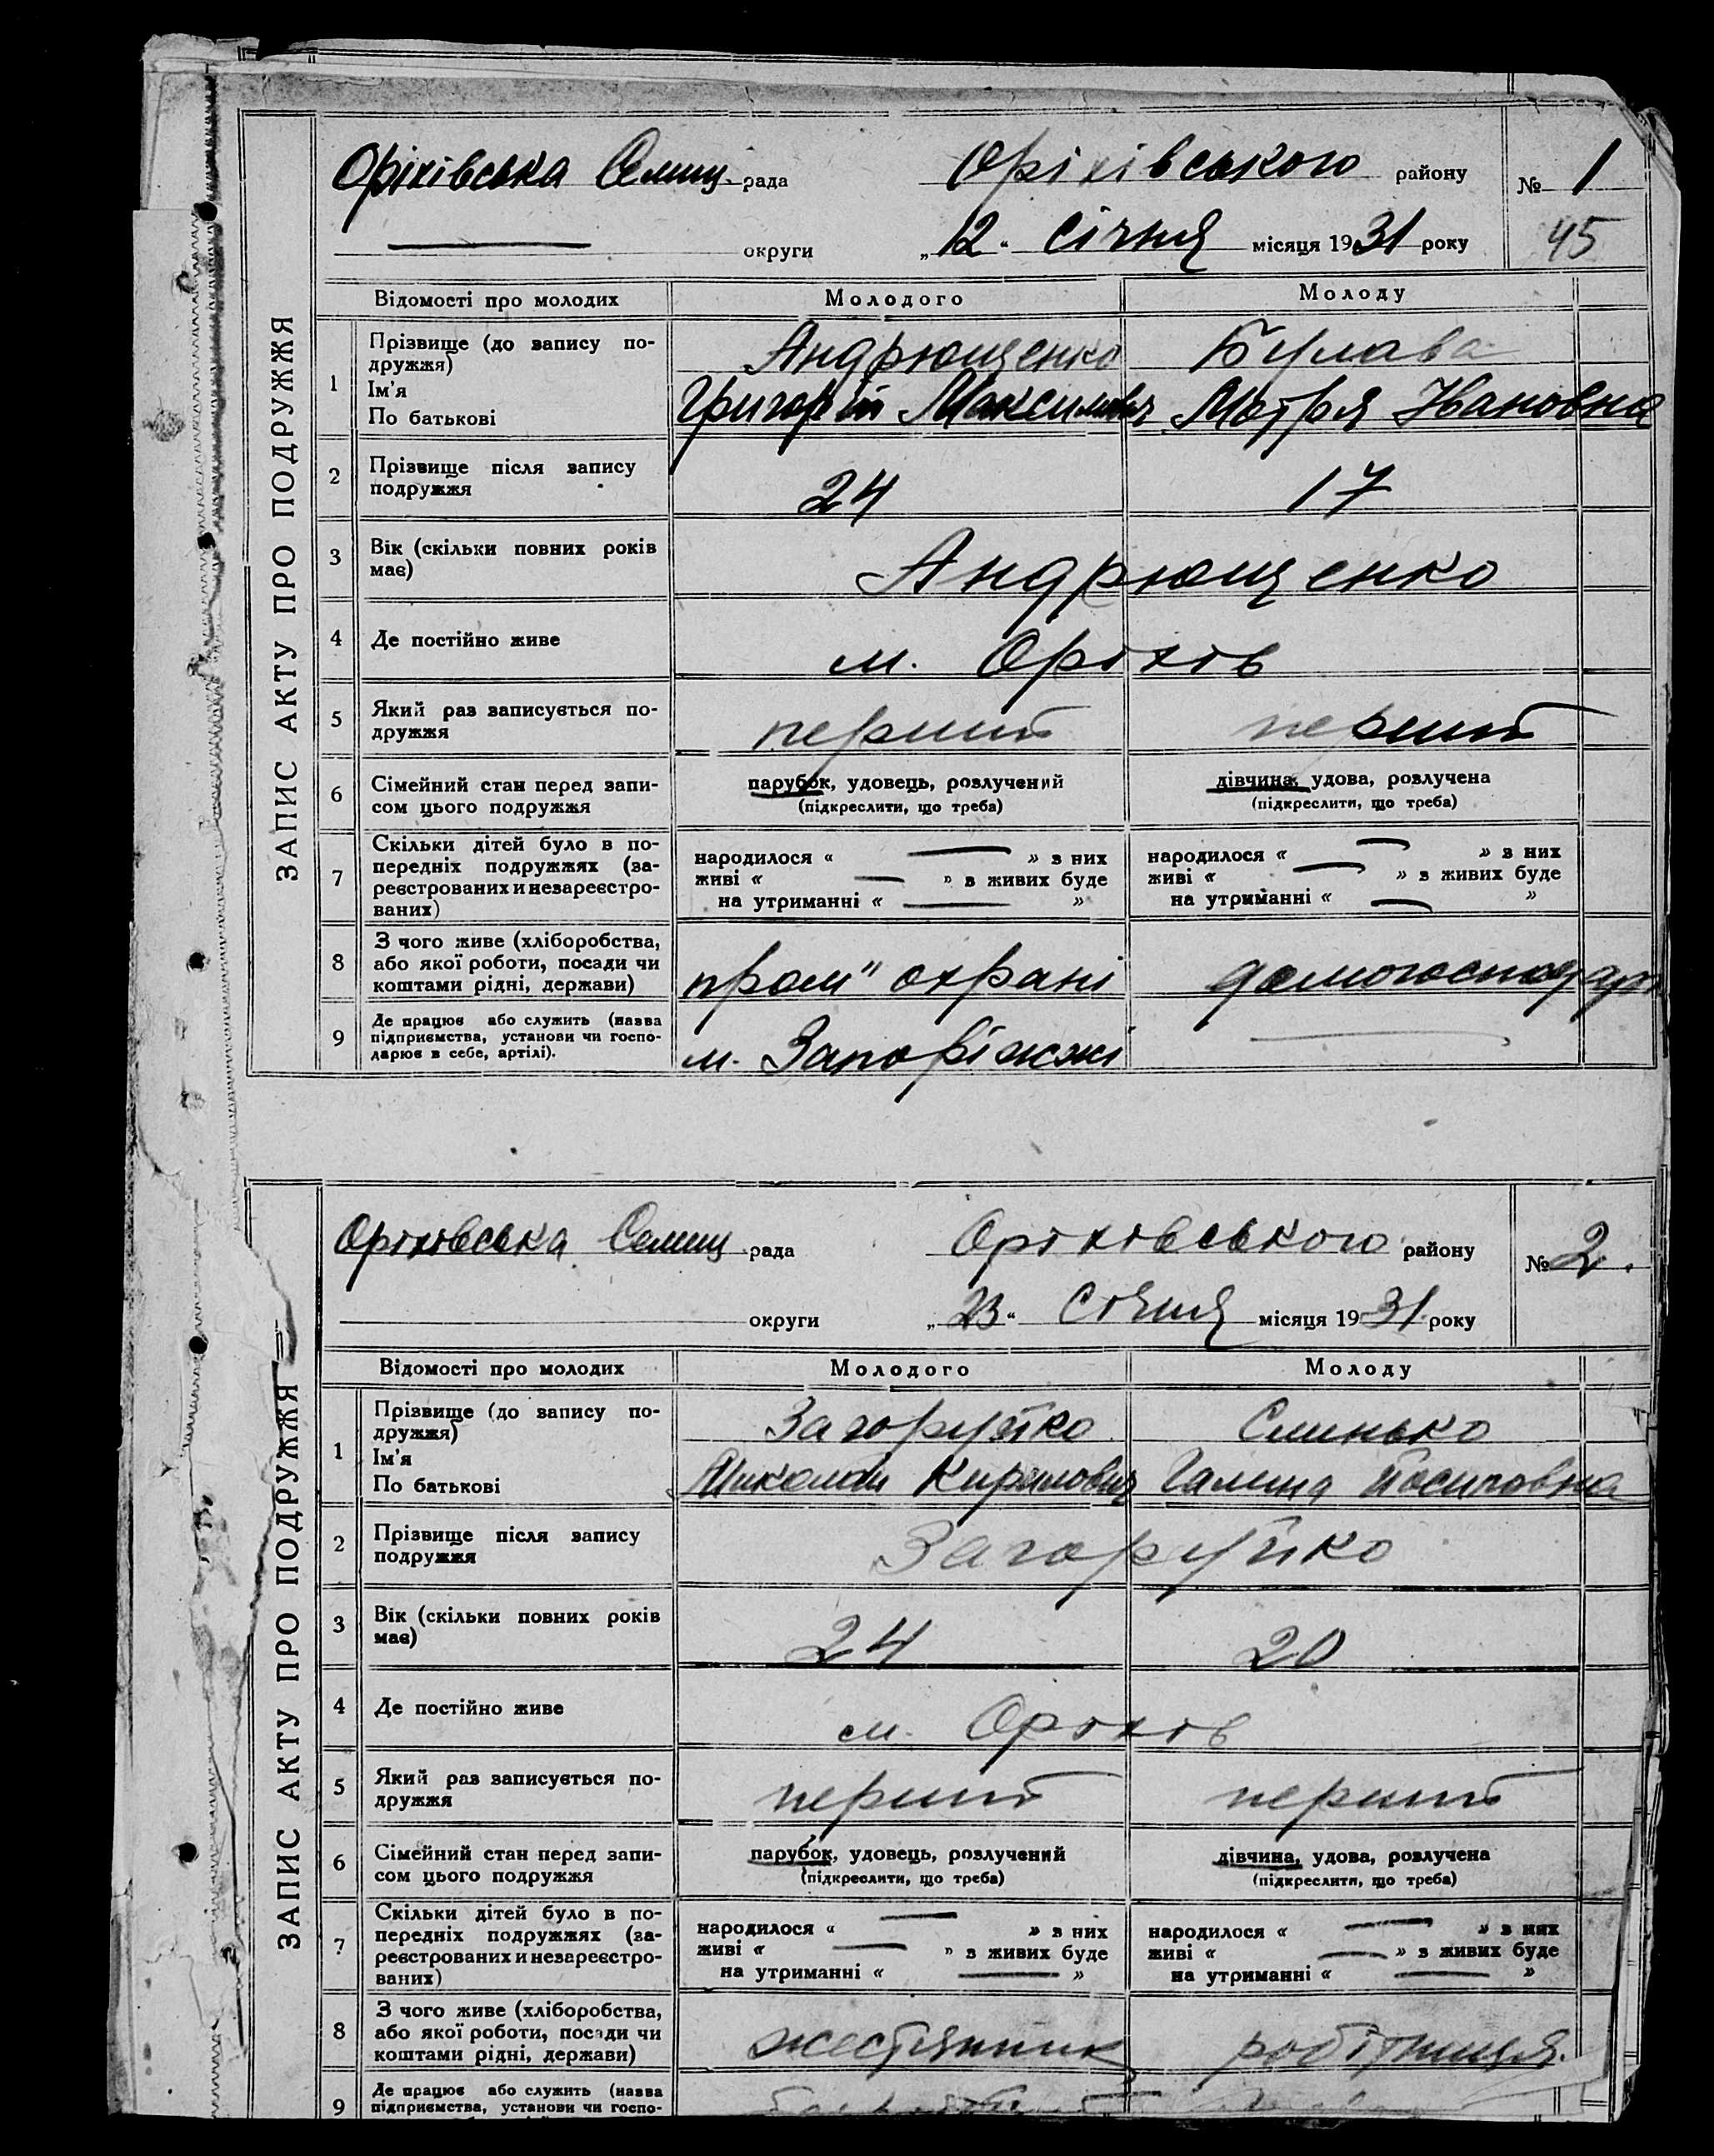 ЗАПИС АКТУ ПРО ПОДРУЖЖЯ
Оріхівська Селищ. рада Оріхівського району № 1
округи „12“ січня місяця 1931 року 45
Відомості про молодих Молодого Молоду
1 Прізвище (до запису по-
дружжя) Андрющенко Булава
Ім'я
По батькові Григорій Максимович Мотря Івановна
2 Прізвище після запису
подружжя 24 17
3 Вік (скільки повних років
має) Андрющенко
4 Де постійно живе м. Оріхів
5 Який раз записується по-
дружжя перший перший
6 Сімейний стан перед запи-
сом цього подружжя
парубок, удовець, розлучений дівчина, удова, розлучена
(підкреслити, що треба) (підкреслити, що треба)
7 Скільки дітей було в по-
передніх подружжях (за-
реєстрованих и незареєстро-
ваних)
народилося « » з них народилося « » з них
живі « » з живих буде живі « » з живих буде
на утриманні « » на утриманні « »
8 З чого живе (хліборобства,
або якої роботи, посади чи
коштами рідні, держави)
пром" охрані
9 Де працює або служить (назва
підприємства, установи чи госпо-
дарює в себе, артілі).
м. Запоріжжі
ЗАПИС АКТУ ПРО ПОДРУЖЖЯ
Оріхівська Селищ рада Оріхівського району № 2.
округи „23“ Січня місяця 1931 року
Відомості про молодих Молодого Молоду
1 Прізвище (до запису по-
дружжя) Загоруйко Слинько
Ім'я
По батькові Миколай Кирилович Галина Йосиповна
2 Прізвище після запису
подружжя Загоруйко
3 Вік (скільки повних років
має) 24 20
4 Де постійно живе м. Оріхів
5 Який раз записується по-
дружжя перший перший
6 Сімейний стан перед запи-
сом цього подружжя
парубок, удовець, розлучений дівчина, удова, розлучена
(підкреслити, що треба) (підкреслити, що треба)
7 Скільки дітей було в по-
передніх подружжях (за-
реєстрованих и незареєстро-
ваних)
народилося « » з них народилося « » з них
живі « » з живих буде живі « » з живих буде
на утриманні « » на утриманні « »
8 З чого живе (хліборобства,
або якої роботи, посади чи
коштами рідні, держави)
жестянник робітниця.
9 Де працює або служить (назва
підприємства, установи чи госпо-